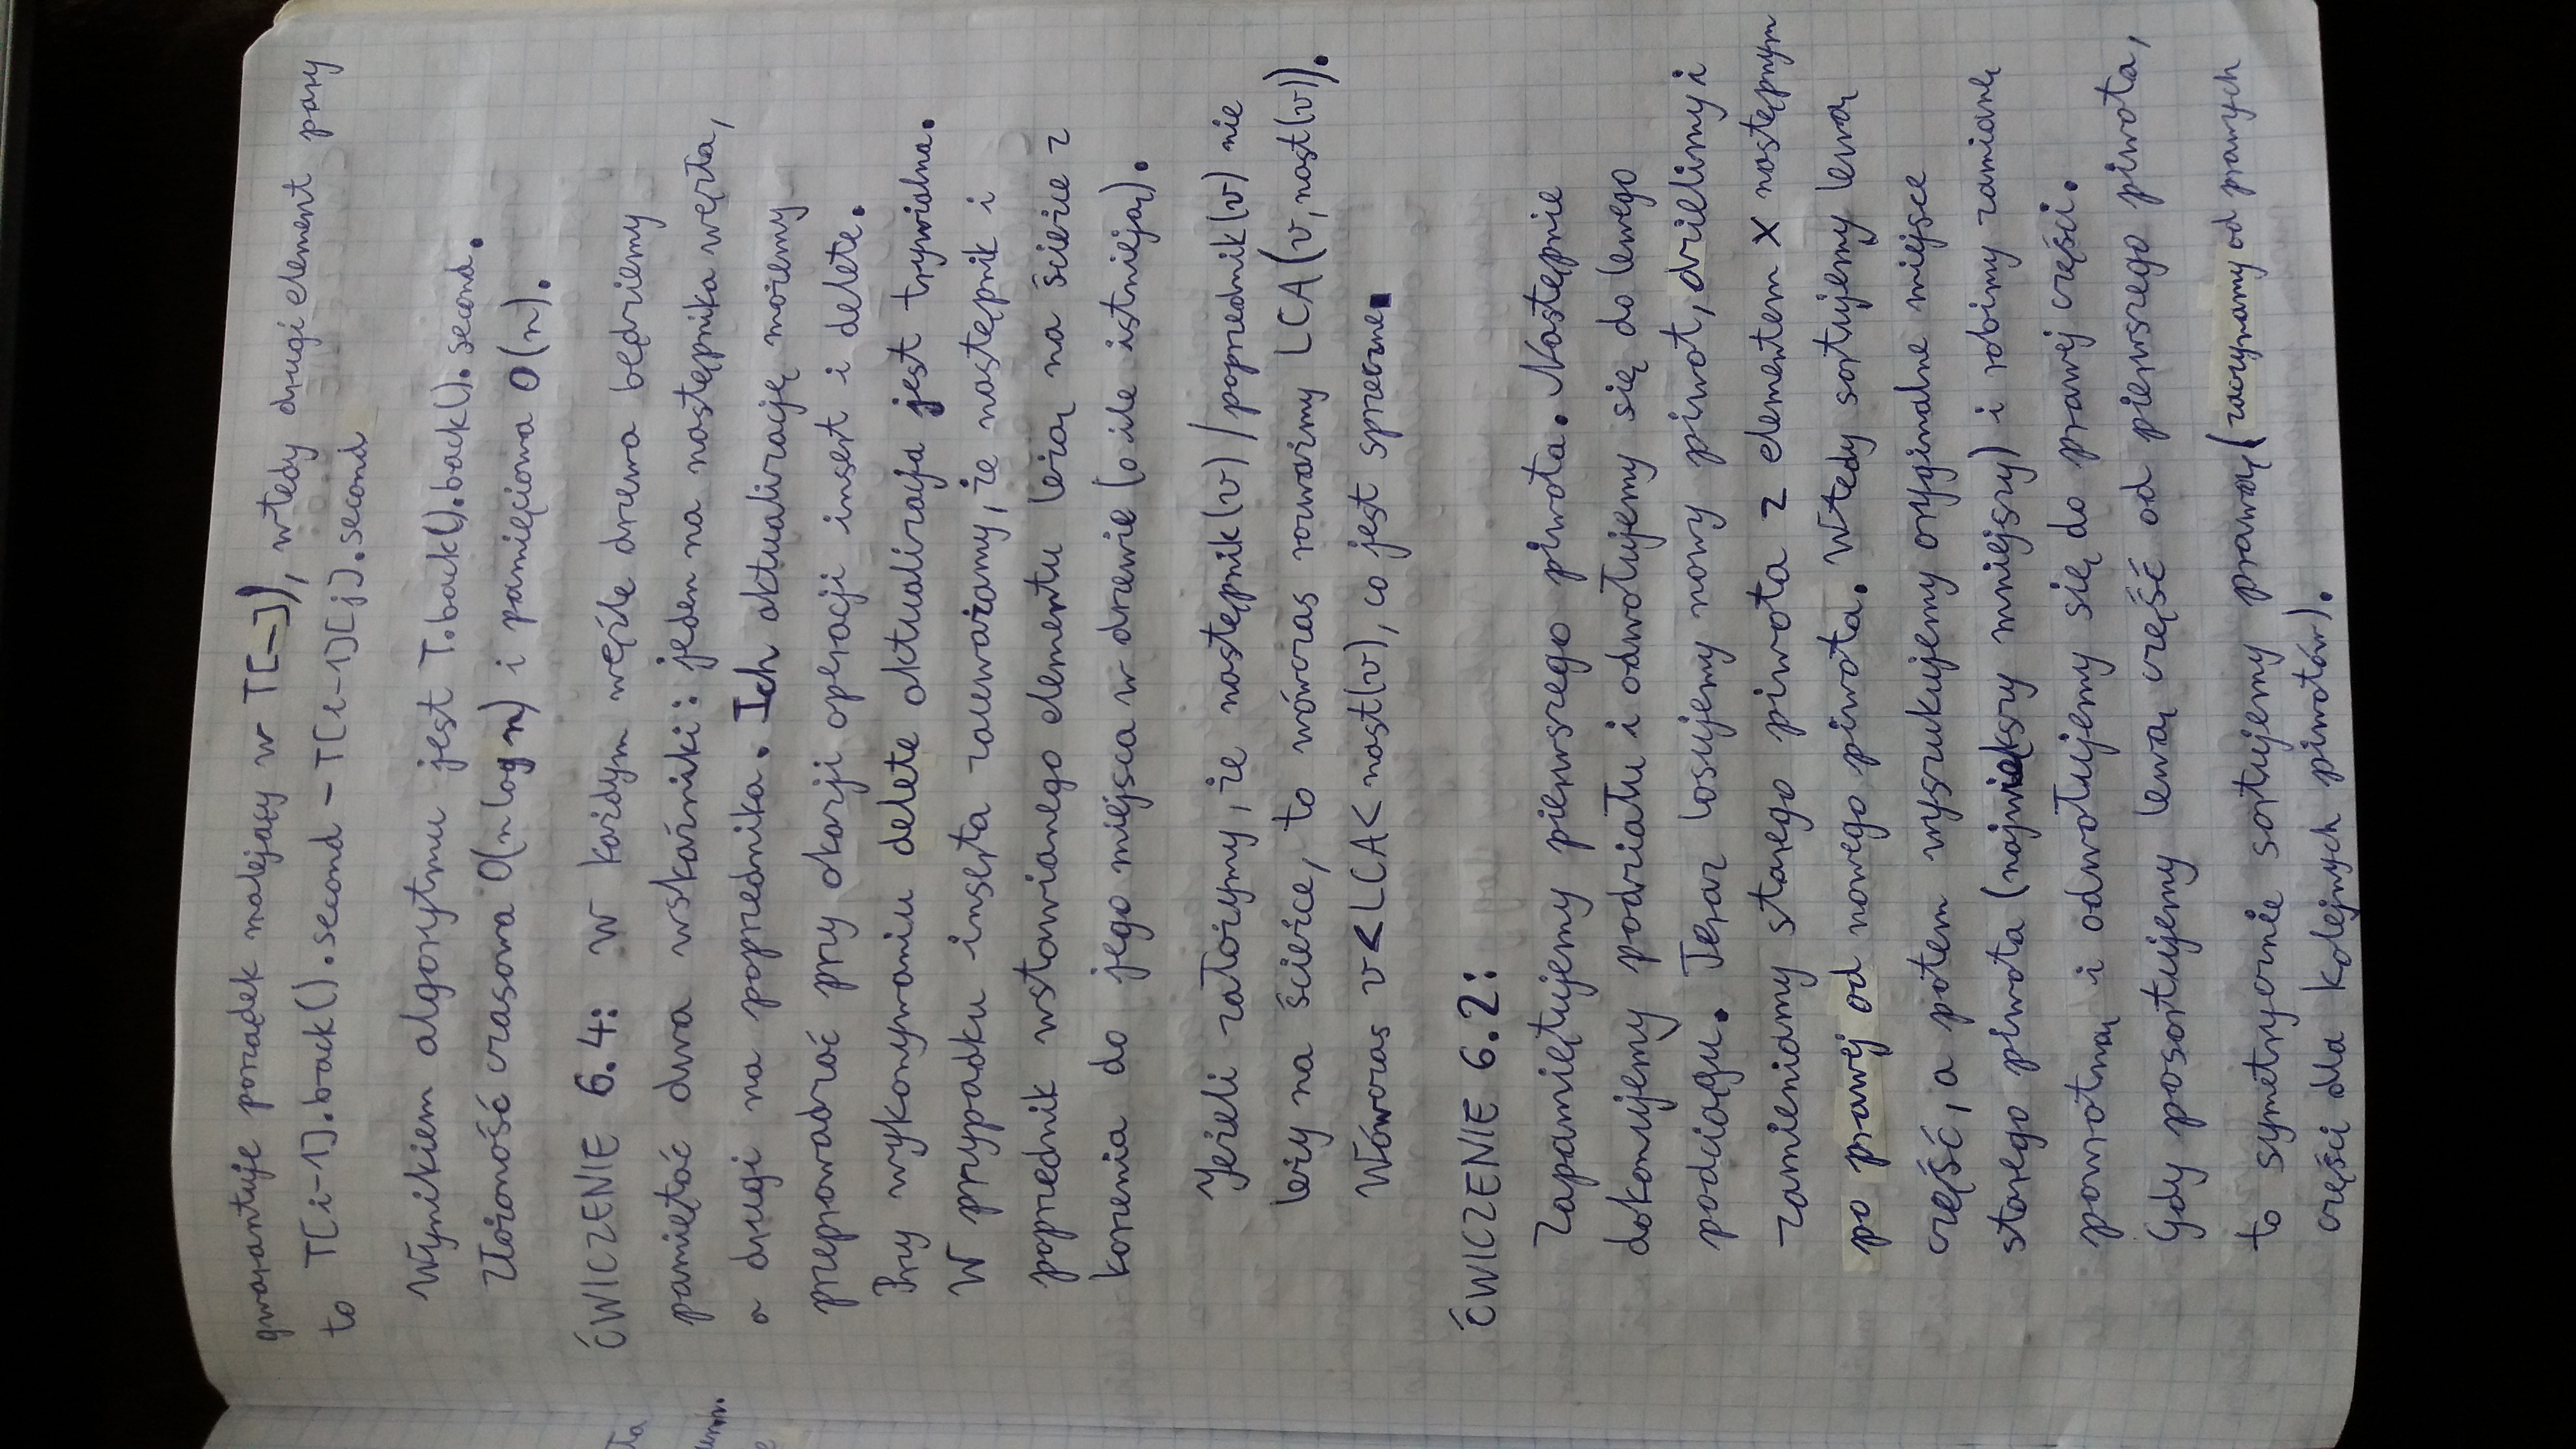 gwarantuje porządek malejący w T[—]), wtedy drugi element pary
to T[i-1].back().second - T[i-1][j].second
Wynikiem algorytmu jest T.back().back().second.
Złożoność czasowa O(n log n) i pamięciowa O(n).
ĆWICZENIE 6.4: W każdym węźle drzewa będziemy
pamiętać dwa wskaźniki: jeden na następnika węzła,
a drugi na poprzednika. Ich aktualizację możemy
przeprowadzać przy okazji operacji insert i delete.
Przy wykonywaniu delete aktualizacja jest trywialna.
W przypadku inserta zauważamy, że następnik i
poprzednik wstawianego elementu leżą na ścieżce z
korzenia do jego miejsca w drzewie (o ile istnieją).
Jeżeli założymy, że następnik(v)/poprzednik(v) nie
leży na ścieżce, to wówczas rozważmy LCA(v, nast(v)).
Wówczas v < LCA < nast(v), co jest sprzeczne.
ĆWICZENIE 6.2:
Zapamiętujemy pierwszego piwota. Następnie
dokonujemy podziału i odwołujemy się do lewego
podciągu. Teraz losujemy nowy piwot, dzielimy i
zamieniamy starego piwota z elementem X następnym
po prawej od nowego piwota. Wtedy sortujemy lewą
część, a potem wyszukujemy oryginalne miejsce
starego piwota (największy mniejszy) i robimy zamianę
powrotną i odwołujemy się do prawej części.
Gdy posortujemy lewą część od pierwszego piwota,
to symetrycznie sortujemy prawą (zaczynamy od prawych
części dla kolejnych piwotów).